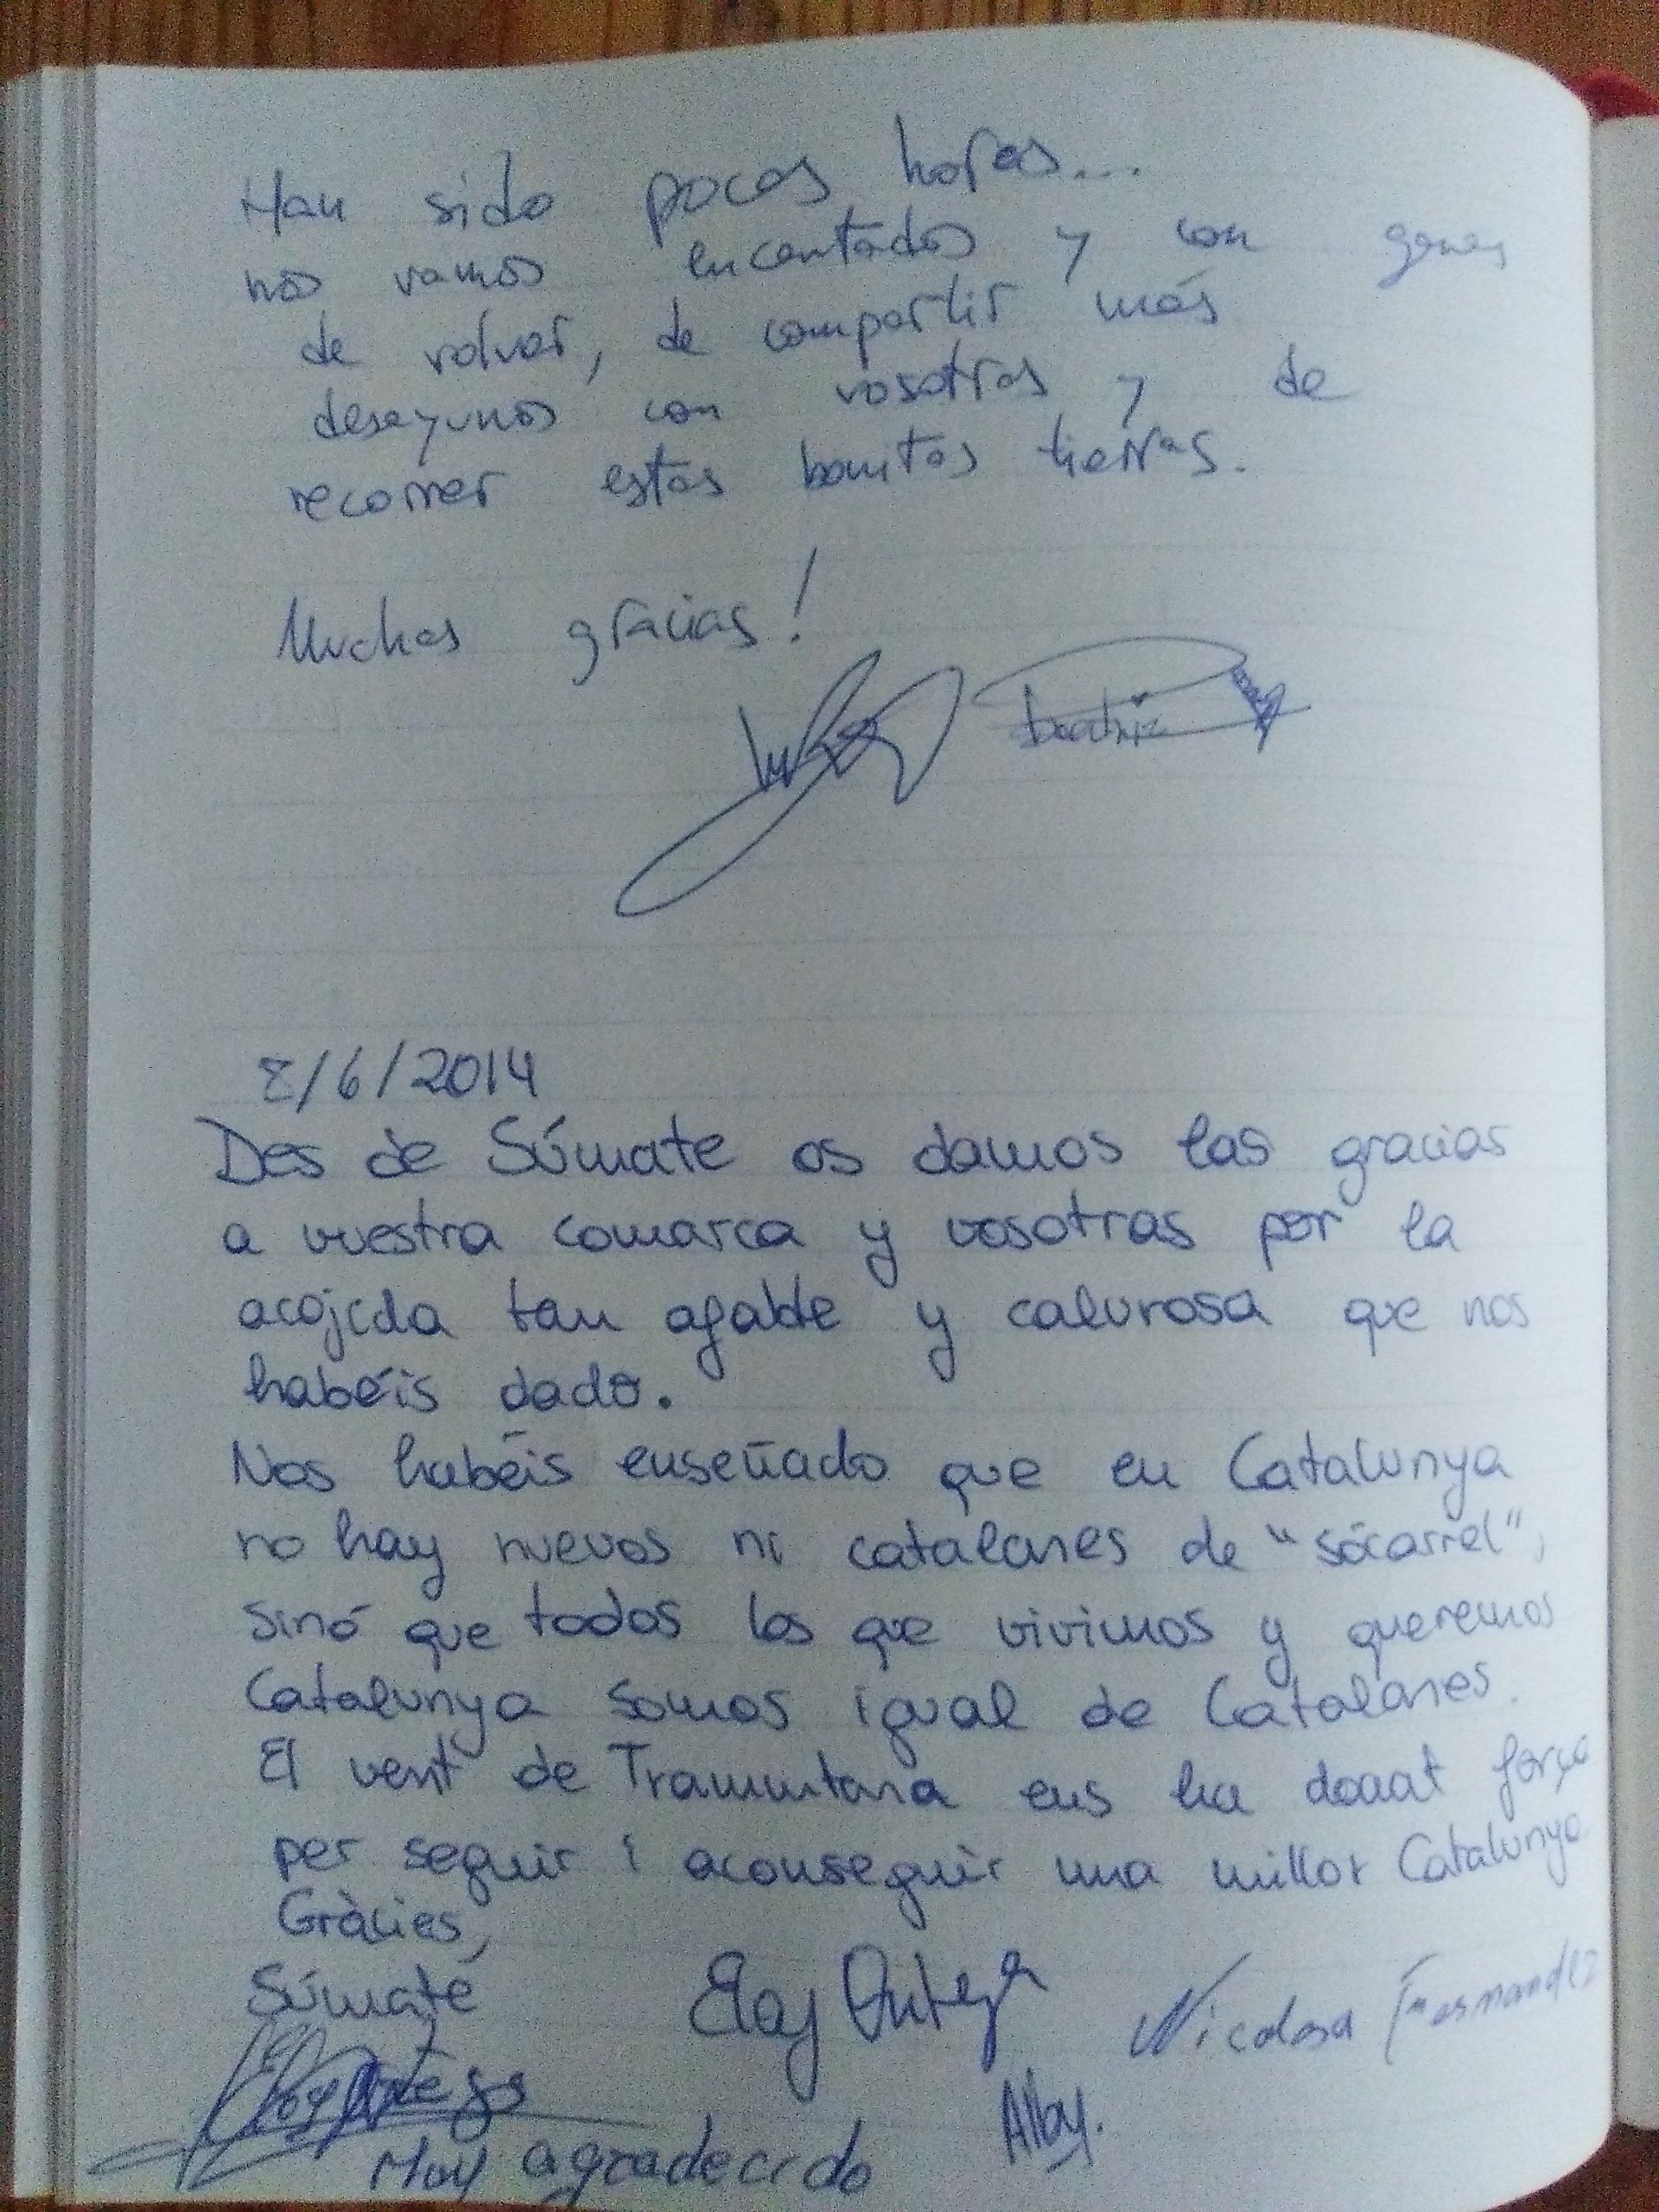 Han sido pocas horas...
nos vamos encantados y con ganas
de volver, de compartir más
desayunos con vosotras y de
recorrer estas bonitas tierras.
Muchas gracias!
Beatriz
8/6/2014
Des de Súmate os damos las gracias
a vuestra comarca y vosotras por la
acojida tan afable y calurosa que nos
habéis dado.
Nos habéis enseñado que en Catalunya
no hay nuevos ni catalanes de "sócarrel",
sinó que todos los que vivimos y queremos
Catalunya somos igual de Catalanes.
El vent de Tramuntana ens ha donat força
per seguir i aconseguir una millor Catalunya
Gràcies,
Súmate
Eloy Ortega
Nicolasa Fernandez
Eloy Ortega
Alby.
Muy agradecido